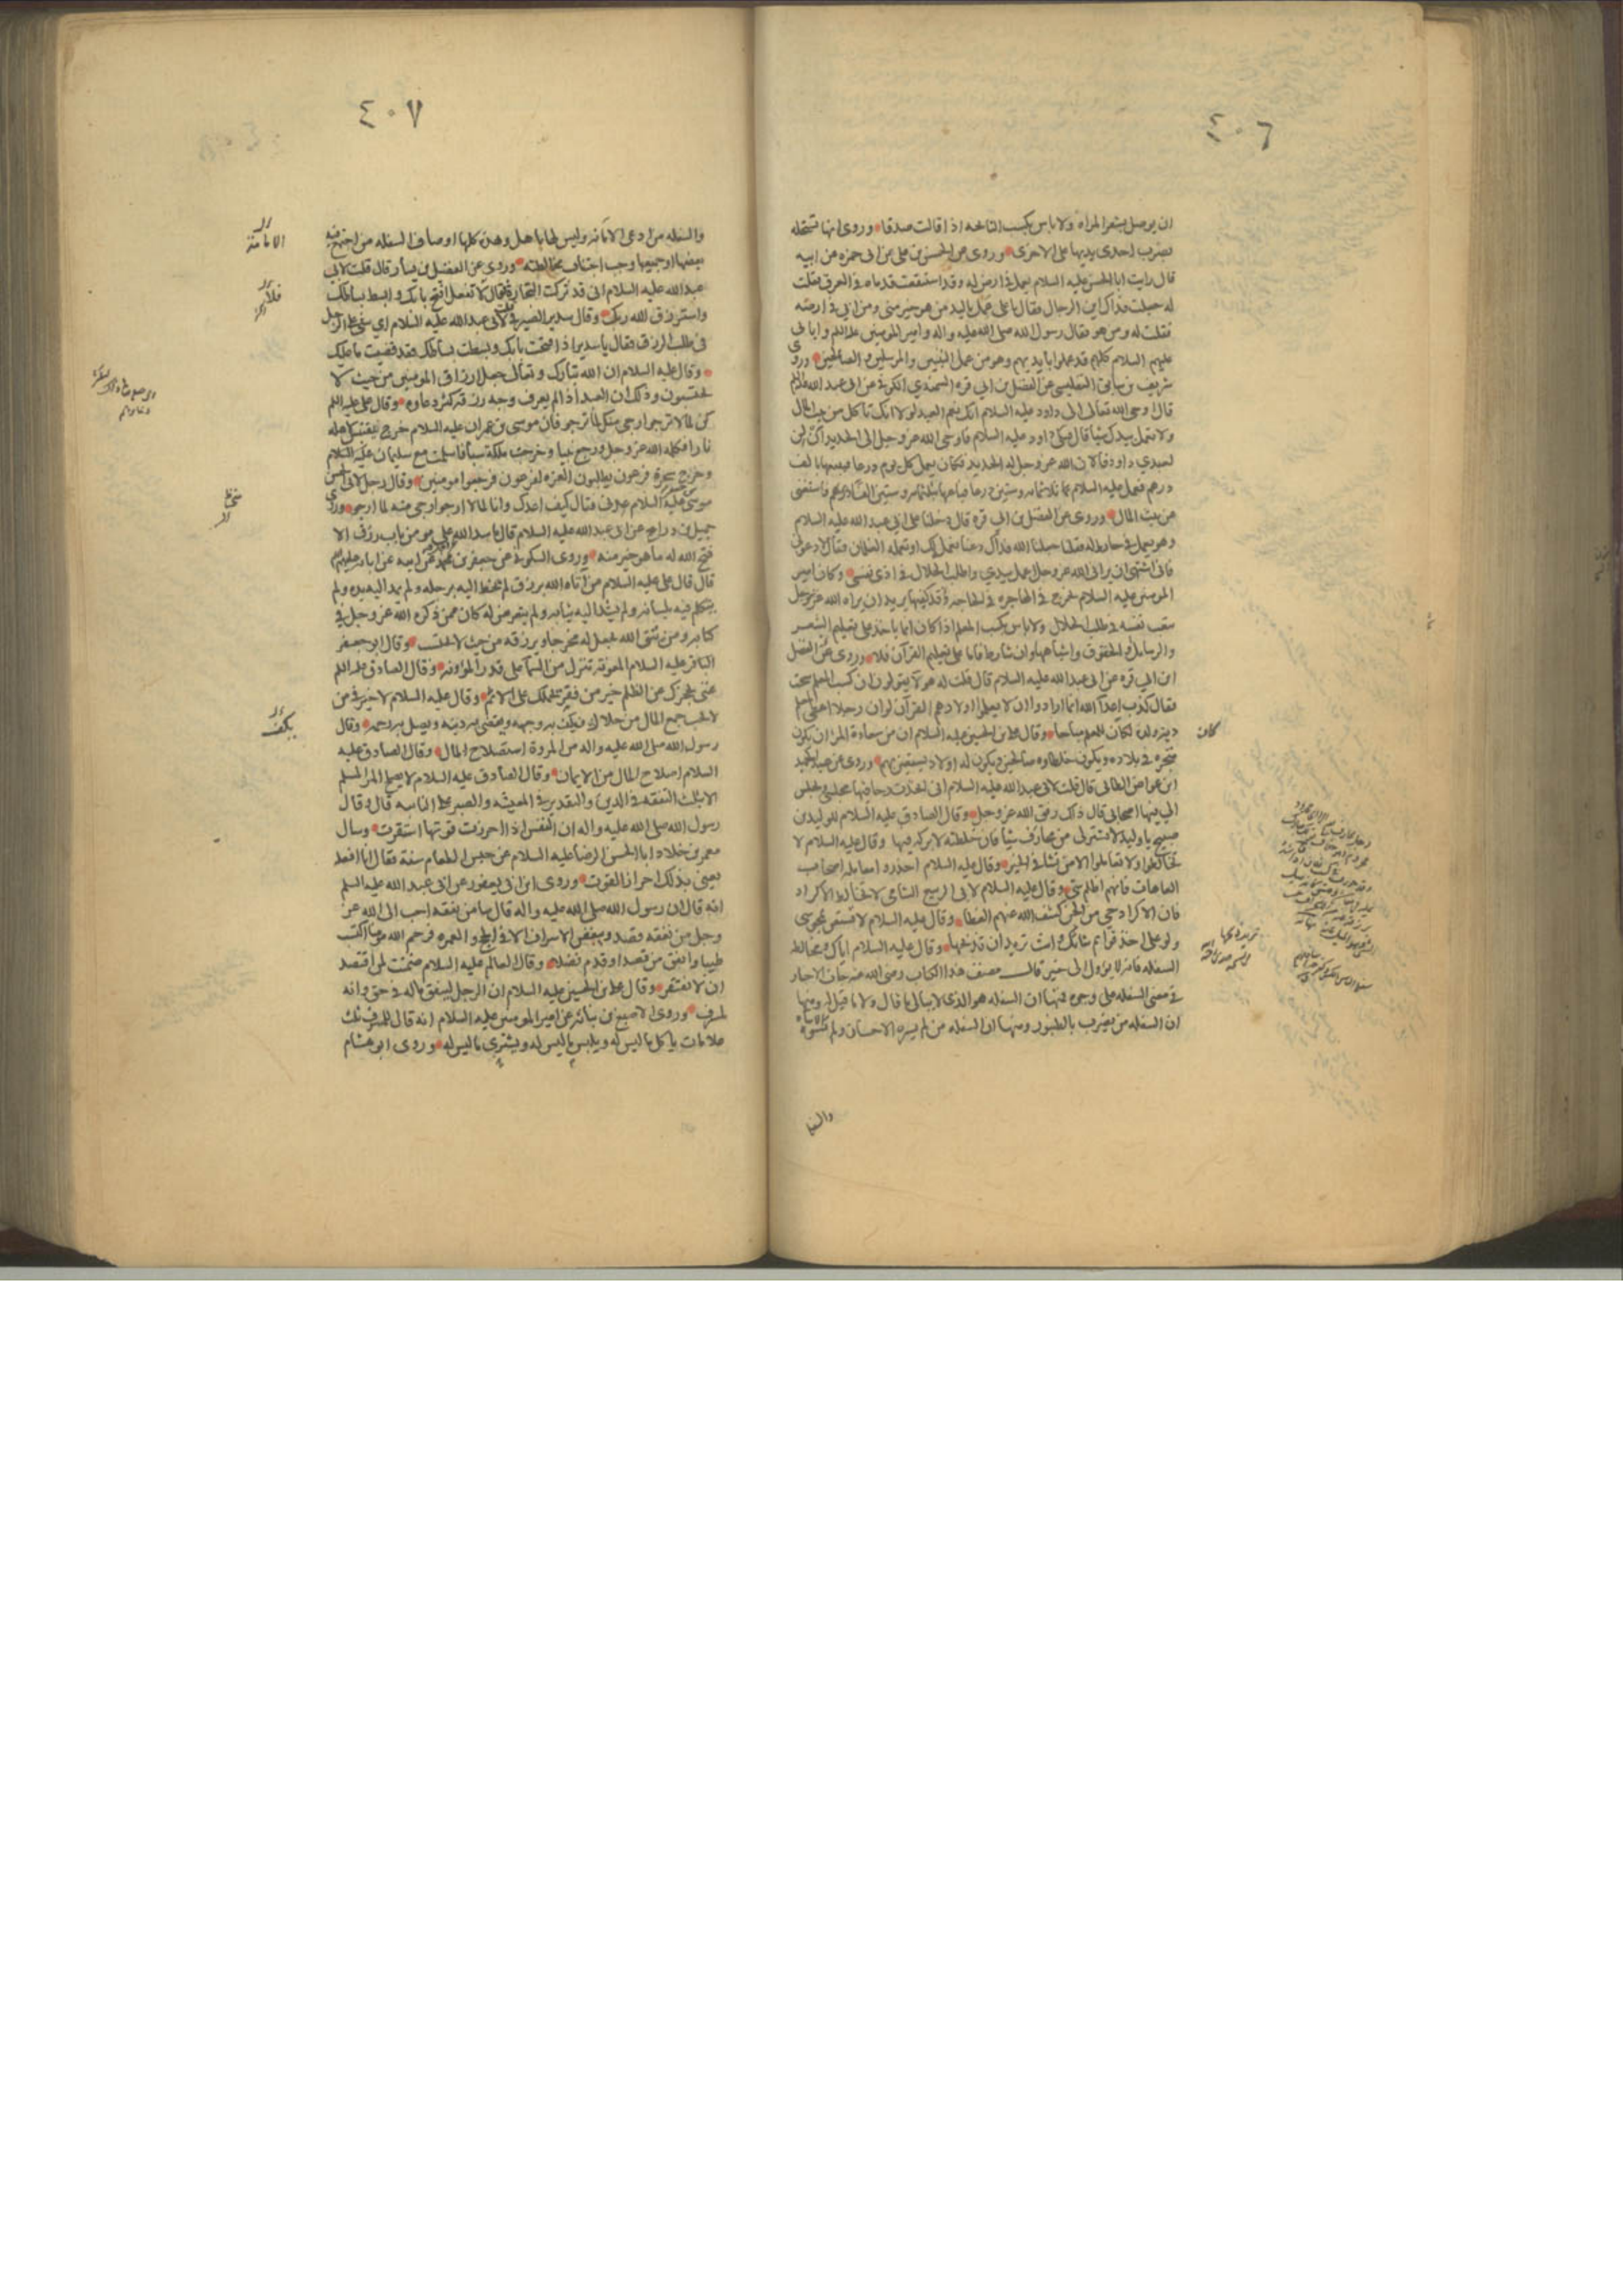 ٤٠٦
ان يوصل بشعر المراة ولا باس بكسب النائحه اذا قالت صدقا وروى انها تستحله
بضرب احدى يديها على الاخرى وروى عن الحسن بن على بن ابى حمزه عن ابيه
قال رايت ابا الحسن عليه السلام يعمل فى ارض له وقد استنقعت قدماه فى العرق فقلت
له جعلت فداك اين الرجال فقال يا على عمل باليد من هو خير منى ومن ابى فى ارضه
فقلت له ومن هو فقال رسول الله صلى الله عليه واله وامير المومنين عليه السلم وابائى
عليهم السلام كلهم قد عملوا بايديهم وهو من عمل النبيين والمرسلين والصالحين وروى
شريف بن سابق التفليسى عن الفضل بن ابى قره السمندى الكوفى عن ابى عبد الله عليه السلم
قال اوحى الله تعالى الى داود عليه السلام انك نعم العبد لولا انك تاكل من بيت المال
ولا تعمل بيدك شيأ قال فبكى داود عليه السلام فاوحى الله عز وجل الى الحديد ان لن
لعبدى داود فالان الله عز وجل له الحديد فكان يعمل كل يوم درعا فيبيعها بالف
درهم فعمل عليه السلام ثلاثمائه وستين درعا فباعها بثلثمائه وستين الفا درهم فاستغنى
عن بيت المال وروى عن الفضل بن ابى قره قال دخلنا على ابى عبد الله عليه السلام
وهو يعمل فى حائط له فقلنا جعلنا الله فداك دعنا نعمل لك او تعمله الغلمان فقال لا دعونى
فانى اشتهى ان يرانى الله عز وجل اعمل بيدى واطلب الحلال فى اذى نفسى وكان امير
المومنين عليه السلام يخرج فى الهاجره فى الحاجة قد كفيها يريد ان يراه الله عز وجل
يتعب نفسه فى طلب الحلال ولا باس بكسب المعلم اذا كان انما ياخذ على تعليم الشعر
والرسايل والحقوق واشباهها وان شارط فاما على تعليم القرآن فلا وروى عن الفضل
ابن ابى قره عن ابى عبد الله عليه السلام قال قلت له هولآء يقولون ان كسب المعلم سحت
فقال كذب اعدآء الله انما ارادوا ان لا يعلموا اولادهم القرآن لو ان رجلا اعطى المعلم
دية ولده لكان للمعلم مباحا وقال على بن الحسين عليه السلام ان من سعادة المرء ان يكون
متجره فى بلاده ويكون خلطاوه صالحين ويكون له اولاد يستعين بهم وروى عن عبد الحميد
ابن عواض الطائى قال قلت لابى عبد الله عليه السلام انى اتخذت رحا فيها مجلسى ويجلس
الى فيها اصحابى قال ذاك رفق الله عز وجل وقال الصادق عليه السلام للوليد بن
صبيح يا وليد لا تشتر لى من محارف شيأ فان خلطته لا بركه فيها وقال عليه السلام لا
تخالطوا ولا تعاملوا الا من نشأ فى الخير وقال عليه السلام احذروا معامله اصحاب
العاهات فانهم اظلم شى وقال عليه السلام لابى الربيع الشامى لا تخالط الاكراد
فان الاكراد حى من الجن كشف الله عنهم الغطا وقال عليه السلام لا تستعن بمجوسى
ولو على اخذ قوائم شاتك وانت تريد ان تذبحها وقال عليه السلام اياك ومخالطة
السفله فانه لا يؤول الى خير قال مصنف هذا الكتاب رضى الله عنه جات الاخبار
فى معنى السفله على وجوه فمنها ان السفله هو الذى لا يبالى ما قال ولا ما قيل له ومنها
ان السفله من يضرب بالطنبور ومنها ان السفله من لم يسره الاحسان ولم تسؤه الاساءه
كان
٤٠٧
والسفله من ادعى الامانه وليس لها باهل وهذه كلها اوصاف السفله من اجتمع فيه
بعضها او جميعها وجب اجتناب مخالطته وروى عن الفضيل بن يسار قال قلت لابى
عبد الله عليه السلام انى قد تركت التجارة فقال لا تفعل افتح بابك وابسط بساطك
واسترزق الله ربك وقال سدير الصيرفى قلت لابى عبد الله عليه السلام اى شى على الرجل
فى طلب الرزق فقال يا سدير اذا فتحت بابك وبسطت بساطك فقد قضيت ما عليك
وقال عليه السلام ان الله تبارك وتعالى جعل ارزاق المومنين من حيث لا
يحتسبون وذلك ان العبد اذا لم يعرف وجه رزقه كثر دعاوه وقال على عليه السلم
كن لما لا ترجو ارجى منك لما ترجو فان موسى بن عمران عليه السلام خرج يقتبس لاهله
نارا فكلمه الله عز وجل ورجع نبيا وخرجت ملكة سبأ فاسلمت مع سليمان عليه السلام
وخرج سحرة فرعون يطلبون العزه لفرعون فرجعوا مومنين وقال رجل لابى الحسن
موسى بن جعفر عليه السلام عدنى فقال كيف اعدك وانا لما لا ارجو ارجى منى لما ارجو وروى
جميل بن دراج عن ابى عبد الله عليه السلام قال ما سد الله على مومن باب رزق الا
فتح الله له ما هو خير منه وروى السكونى عن جعفر بن محمد عن ابيه عن ابائه عليهم السلم
قال قال على عليه السلام من آتاه الله برزق لم يخط اليه برجله ولم يمد اليه يده ولم
يتكلم فيه بلسانه ولم يشد اليه ثيابه ولم يتعرض له كان ممن ذكره الله عز وجل فى
كتابه ومن يتق الله يجعل له مخرجا ويرزقه من حيث لا يحتسب وقال ابو جعفر
الباقر عليه السلام المعونة تنزل من السمآء على قدر المؤونه وقال الصادق عليه السلم
غنى يحجزك عن الظلم خير من فقر يحملك على الاثم وقال عليه السلام لا خير فى من
لا يحب جمع المال من حلال فيكف به وجهه ويقضى به دينه ويصل به رحمه وقال
رسول الله صلى الله عليه واله من المروة استصلاح المال وقال الصادق عليه
السلام اصلاح المال من الايمان وقال الصادق عليه السلام لا يصلح المرء المسلم
الا بثلث التفقه فى الدين والتقدير فى المعيشه والصبر على النائبه قال وقال
رسول الله صلى الله عليه واله ان النفس اذا احرزت قوتها استقرت وسال
معمر بن خلاد ابا الحسن الرضا عليه السلام عن حبس الطعام سنة فقال انا افعله
يعنى بذلك احراز القوت وروى ابن ابى يعفور عن ابى عبد الله عليه السلم
انه قال ان رسول الله صلى الله عليه واله قال ما من نفقه احب الى الله عز
وجل من نفقه قصد ويبغض الاسراف الا فى الحج والعمره فرحم الله مومنا اكتسب
طيبا وانفق من قصد او قدم فضلا وقال العالم عليه السلام ضمنت لمن اقتصد
ان لا يفتقر وقال على بن الحسين عليه السلام ان الرجل لينفق ماله فى حق وانه
لمسرف وروى الاصبغ بن نباته عن امير المومنين عليه السلام انه قال للمسرف ثلث
علامات ياكل ما ليس له ويلبس ما ليس له ويشترى ما ليس له وروى ابو هشام
الامامة
يكف